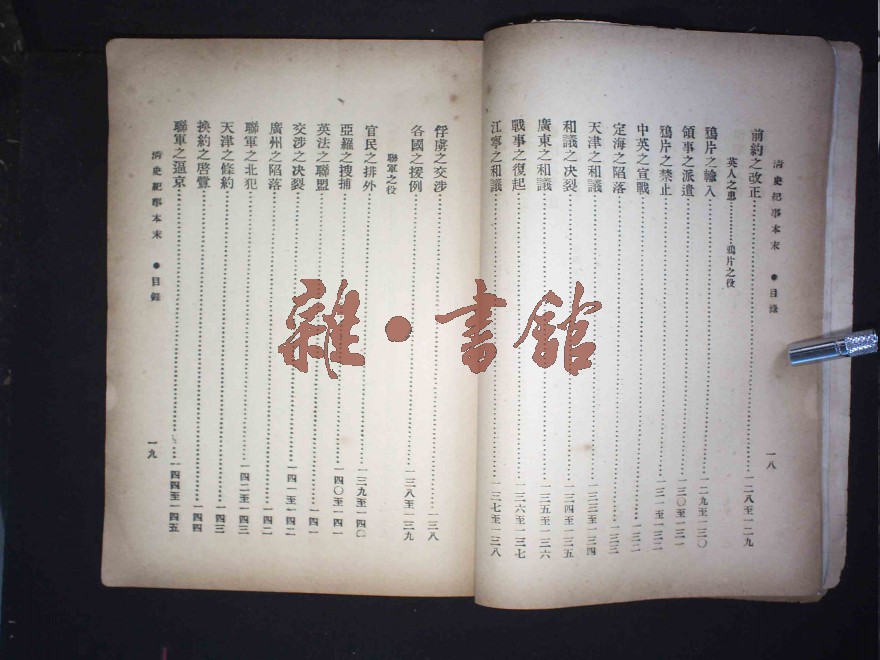 清史紀事本末 ● 目錄 一八
前約之改正 一二八至一二九
英人之患 鴉片之役
鴉片之輸入 一二九至一三〇
領事之派遣 一三〇至一三一
鴉片之禁止 一三一至一三二
中英之宣戰 一三二
定海之陷落 一三三
天津之和議 一三三至一三四
和議之決裂 一三四至一三五
廣東之和議 一三五至一三六
戰事之復起 一三六至一三七
江寧之和議 一三七至一三八
俘虜之交涉 一三八
各國之援例 一三八至一三九
聯軍之役
官民之排外 一三九至一四〇
亞羅之搜捕 一四〇至一四一
英法之聯盟 一四一
交涉之決裂 一四一至一四二
廣州之陷落 一四二
聯軍之北犯 一四二至一四三
天津之條約 一四三
換約之啓釁 一四四
聯軍之逼京 一四四至一四五
清史紀事本末 ● 目錄 一九
雜·書館